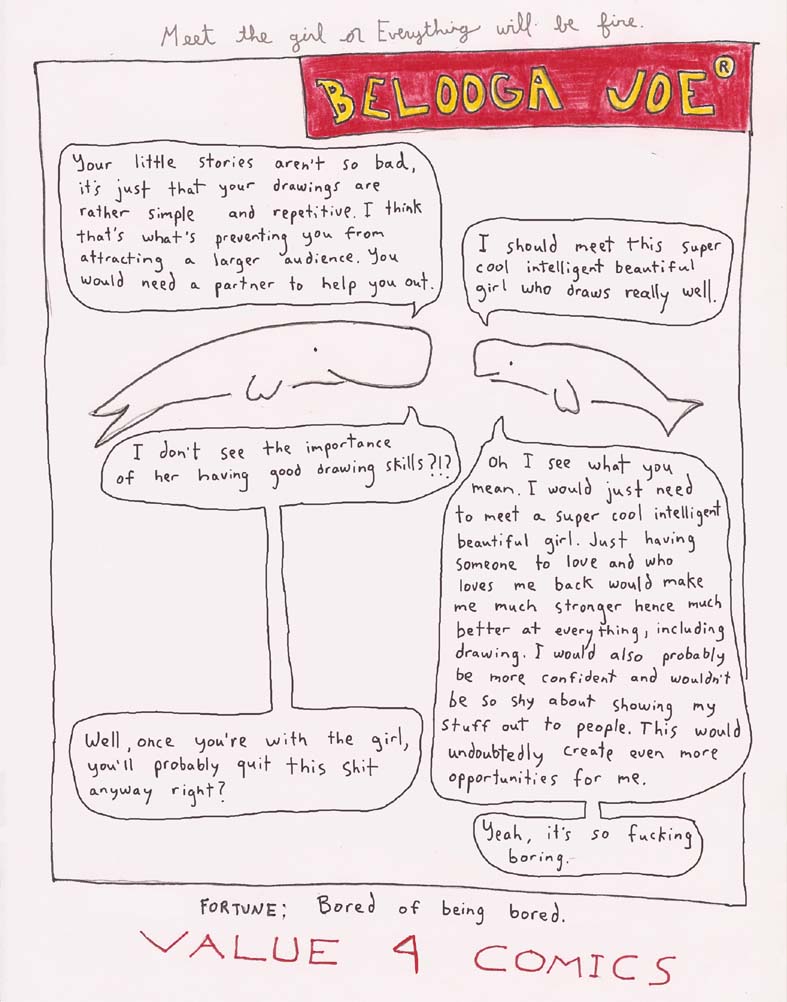 Meet the girl or Everything will be fine.
BELOOGA JOE®
Your little stories aren't so bad,
it's just that your drawings are
rather simple and repetitive. I think
that's what's preventing you from
attracting a larger audience. You
would need a partner to help you out.
I should meet this super
cool intelligent beautiful
girl who draws really well.
I don't see the importance
of her having good drawing skills?!?
Oh I see what you
mean. I would just need
to meet a super cool intelligent
beautiful girl. Just having
someone to love and who
loves me back would make
me much stronger hence much
better at everything, including
drawing. I would also probably
be more confident and wouldn't
be so shy about showing my
stuff out to people. This would
undoubtedly create even more
opportunities for me.
Well, once you're with the girl,
you'll probably quit this shit
anyway right?
Yeah, it's so fucking
boring.
FORTUNE; Bored of being bored.
VALUE 4 COMICS